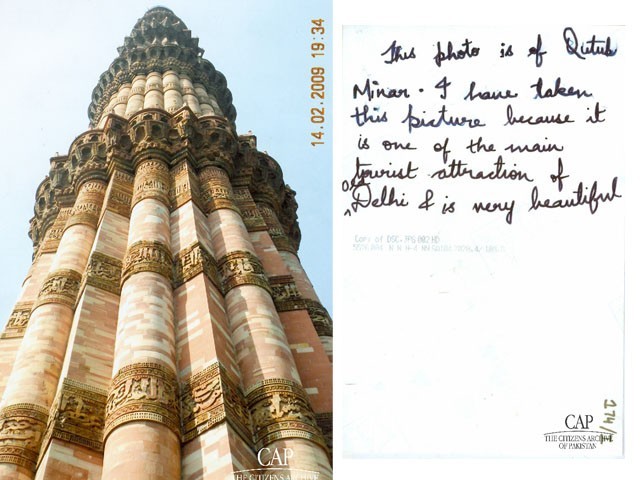 14.02.2009 19:34
CAP
THE CITIZENS ARCHIVE
This photo is of Qutub
Minar. I have taken
this picture because it
is one of the main
tourist attraction of
old
Delhi & is very beautiful
Copy of DSC
274/1
CAP
THE CITIZENS ARCHIVE
OF PAKISTAN